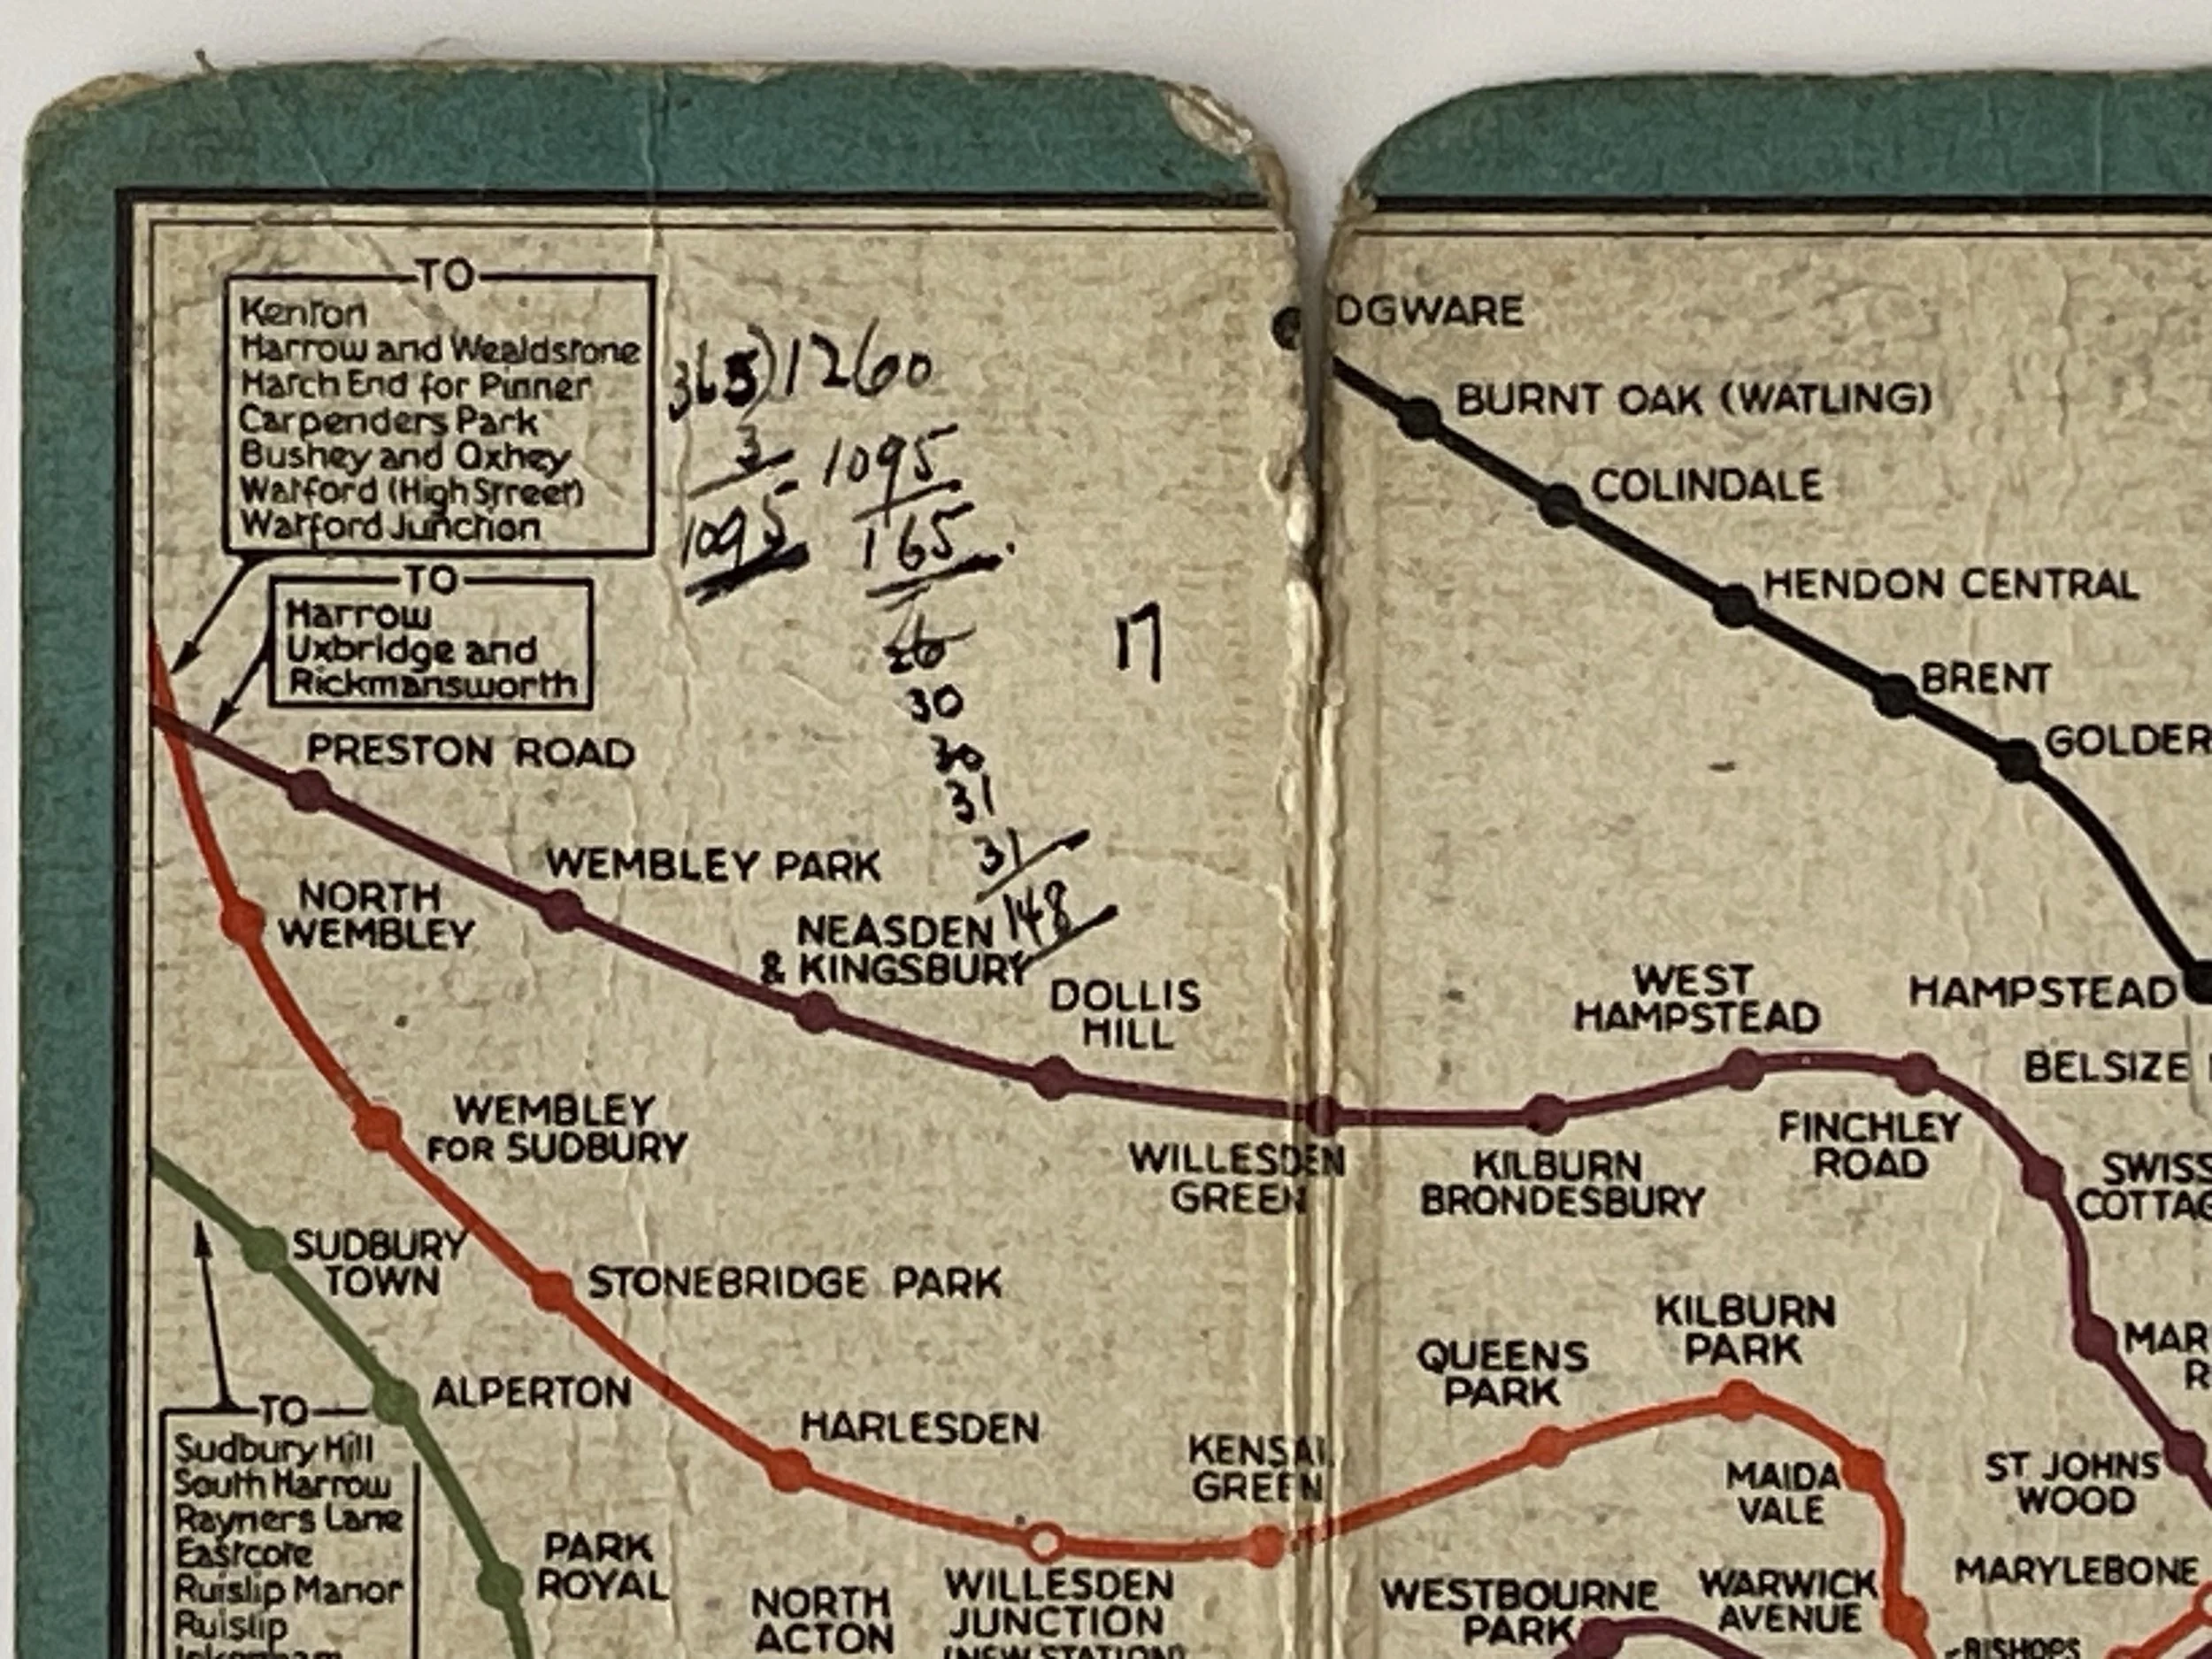 TO
Kenton
Harrow and Wealdstone
Hatch End for Pinner
Carpenders Park
Bushey and Oxhey
Watford (High Street)
Watford Junction
TO
Harrow
Uxbridge and
Rickmansworth
365)1260
3
1095
1095
165
30
30
31
31
148
17
DGWARE
BURNT OAK (WATLING)
COLINDALE
HENDON CENTRAL
BRENT
GOLDER
PRESTON ROAD
WEMBLEY PARK
NORTH
WEMBLEY
NEASDEN
& KINGSBURY
DOLLIS
HILL
WEST
HAMPSTEAD
HAMPSTEAD
BELSIZE
WEMBLEY
FOR SUDBURY
WILLESDEN
GREEN
KILBURN
BRONDESBURY
FINCHLEY
ROAD
SWISS
COTTAG
SUDBURY
TOWN
STONEBRIDGE PARK
KILBURN
PARK
QUEENS
PARK
MAR
R
ALPERTON
HARLESDEN
KENSAL
GREEN
MAIDA
VALE
ST JOHNS
WOOD
TO
Sudbury Hill
South Harrow
Rayners Lane
Eastcote
Ruislip Manor
Ruislip
Ickenham
PARK
ROYAL
NORTH
ACTON
WILLESDEN
JUNCTION
(NEW STATION)
WESTBOURNE
PARK
WARWICK
AVENUE
MARYLEBONE
BISHOPS